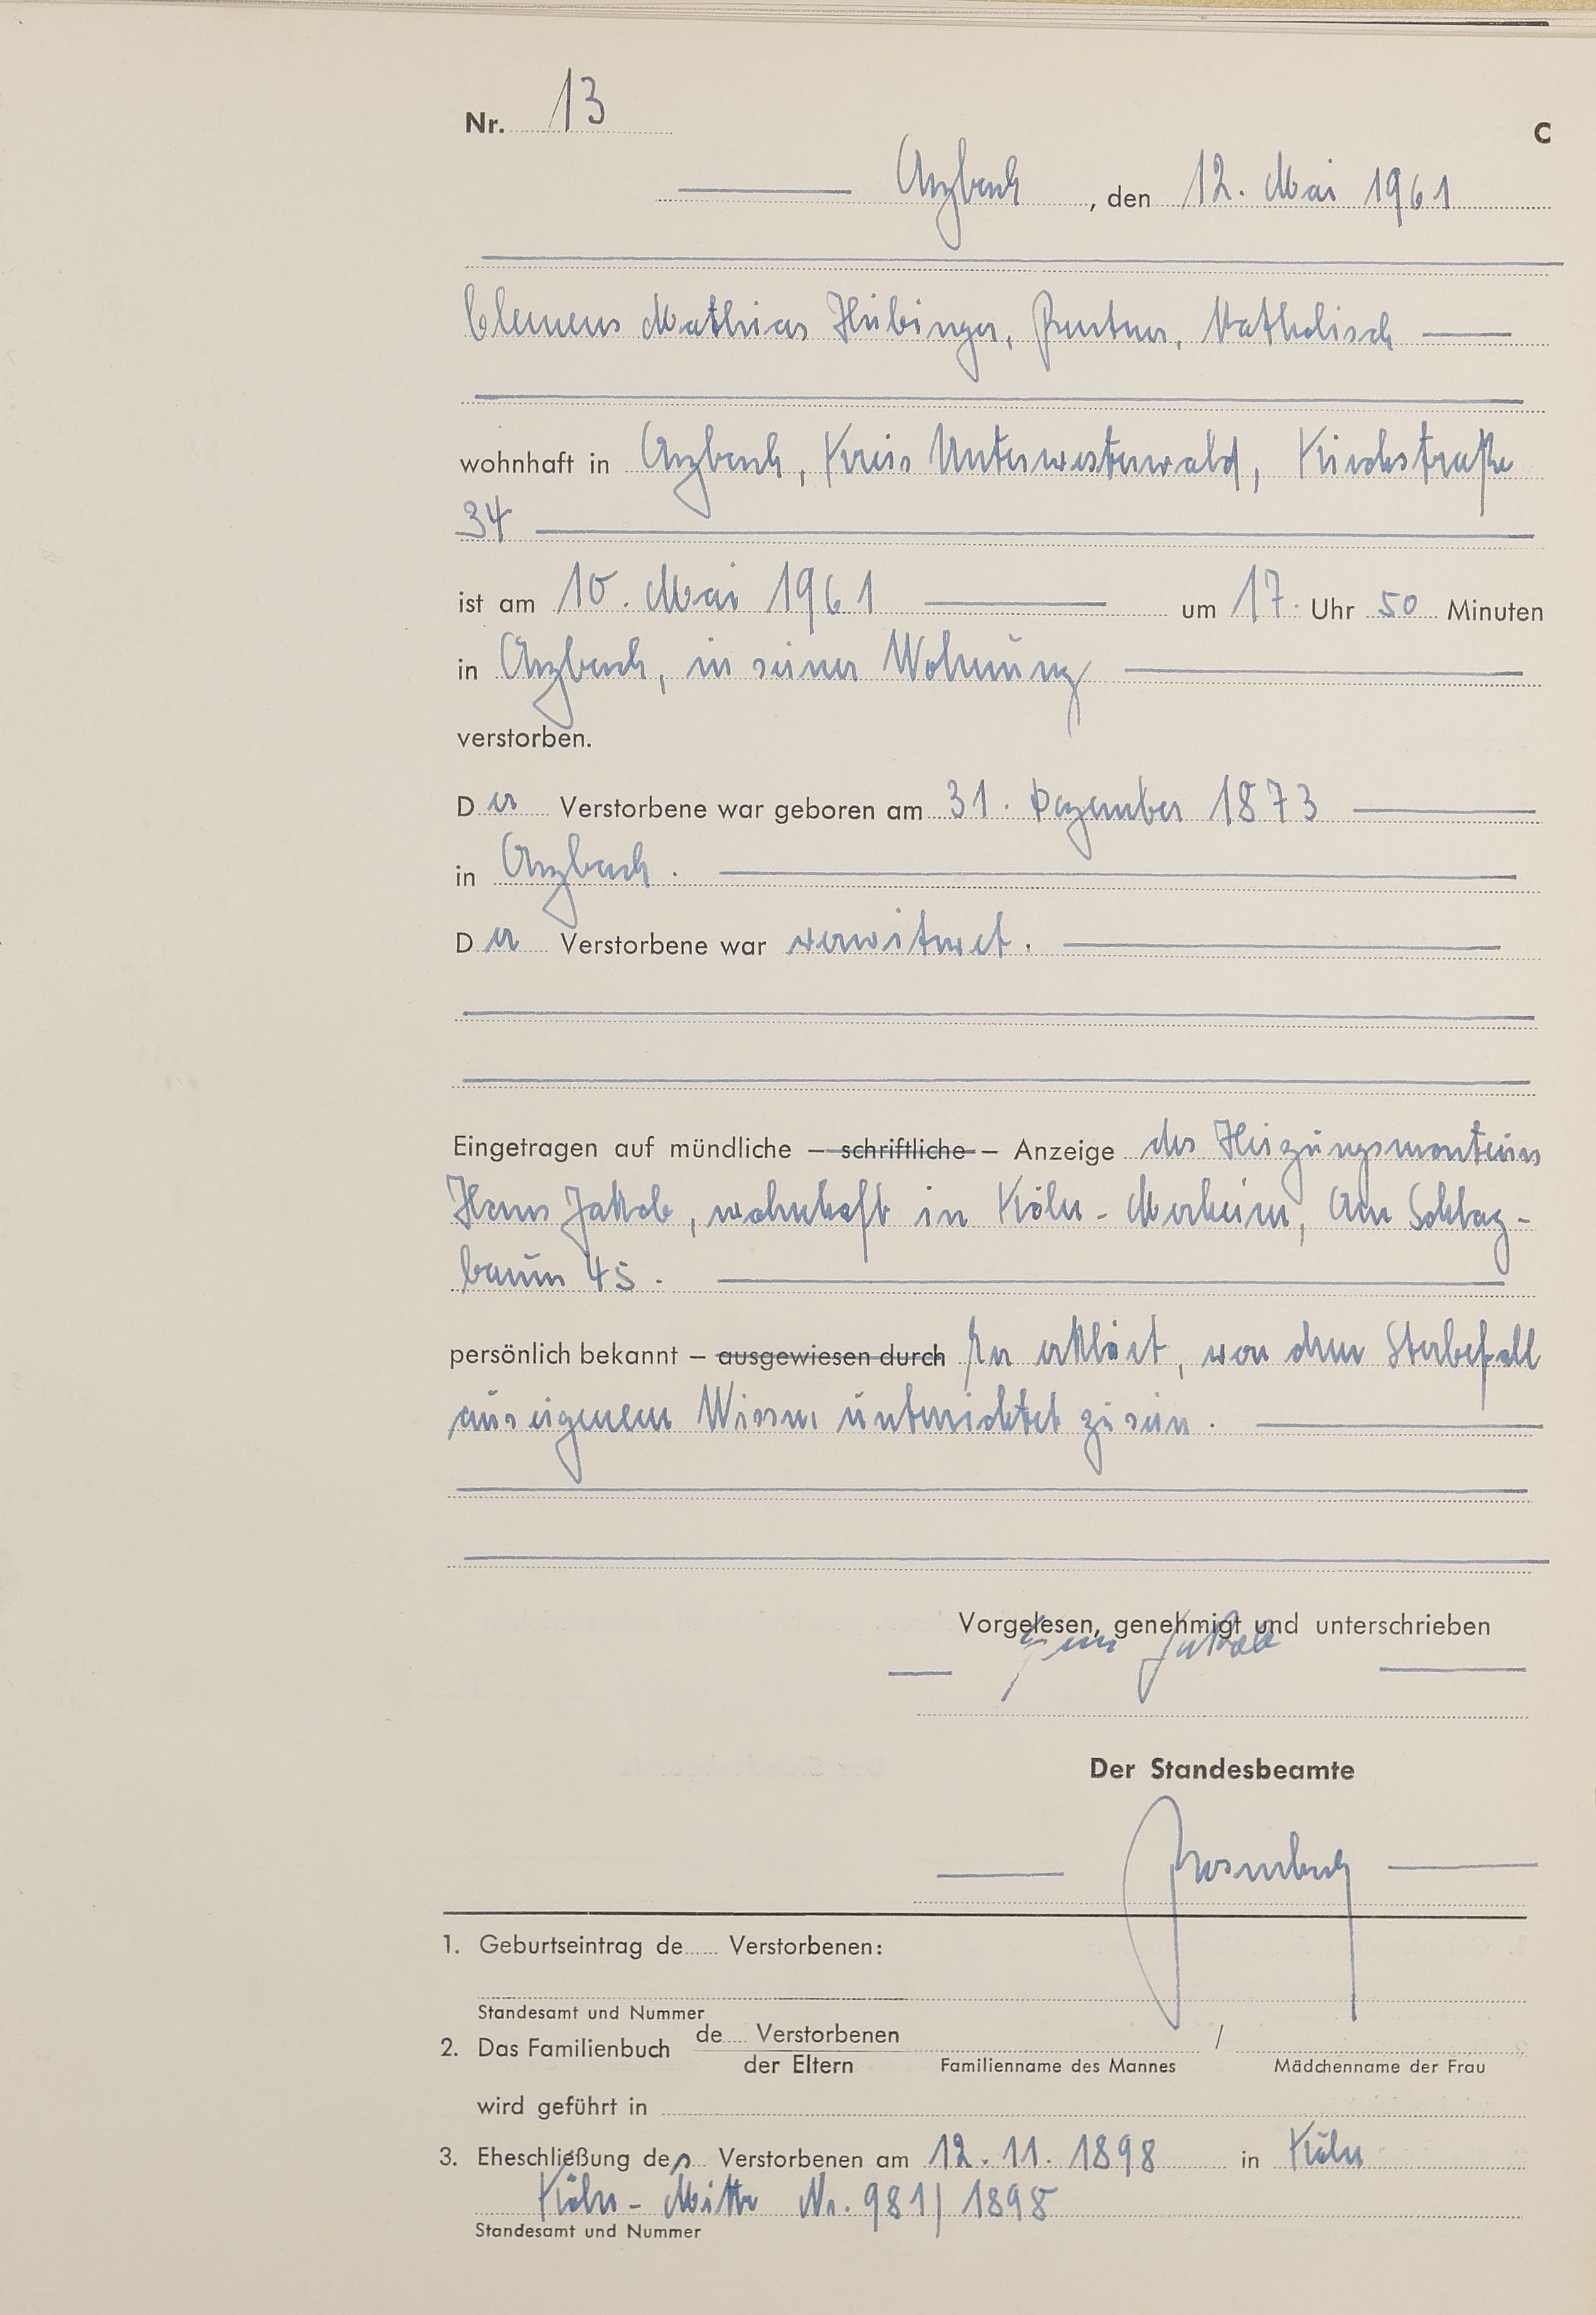 Nr. 13
C
Arzbach, den 12. Mai 1961
Clemens Mathias Hübinger, Rentner, Katholisch
wohnhaft in Arzbach, Kreis Unterwesterwald, Kirchstraße
34
ist am 10. Mai 1961 um 17 Uhr 50 Minuten
in Arzbach, in seiner Wohnung
verstorben.
Der Verstorbene war geboren am 31. Dezember 1873
in Arzbach.
Der Verstorbene war verwitwet.
Eingetragen auf mündliche – schriftliche – Anzeige des Heizungsmonteurs
Hans Jakob, wohnhaft in Köln-Merheim, Am Schlag-
baum 45.
persönlich bekannt – ausgewiesen durch Er erklärt, von dem Sterbefall
aus eigenem Wissen unterrichtet zu sein.
Vorgelesen, genehmigt und unterschrieben
Jakob
Der Standesbeamte
1. Geburtseintrag de Verstorbenen:
Standesamt und Nummer
2. Das Familienbuch de Verstorbenen /
der Eltern Familienname des Mannes Mädchenname der Frau
wird geführt in
3. Eheschließung des Verstorbenen am 12.11.1898 in Köln
Köln-Mitte Nr. 981/1898
Standesamt und Nummer